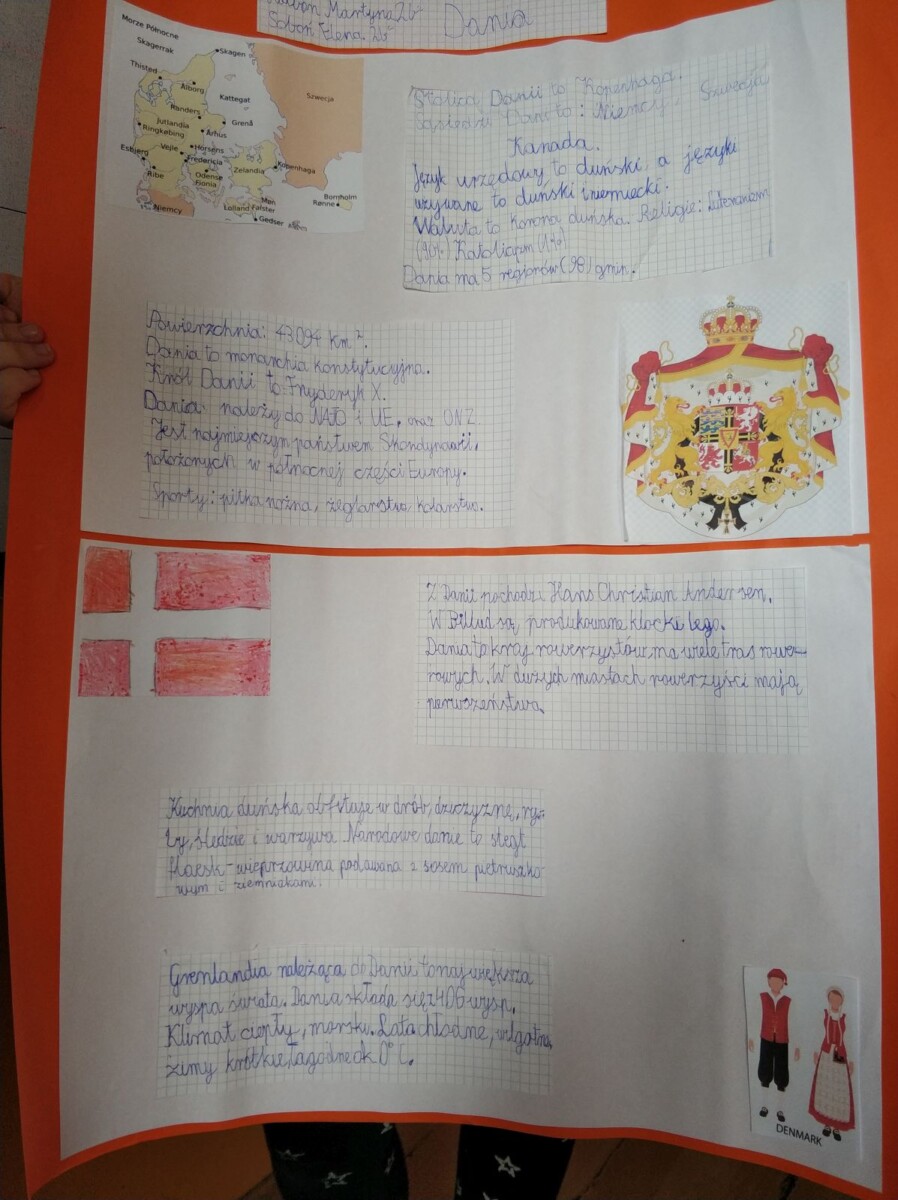 Martyna 2b
Soboń Elena 2b
Dania
Morze Północne
Skagerrak
Skagen
Thisted
Ålborg
Kattegat
Szwecja
Randers
Jutlandia
Grenå
Ringkøbing
Århus
Esbjerg
Vejle
Horsens
Fredericia
Ribe
Odense
Fionia
Zelandia
Kopenhaga
Møn
Lolland Falster
Bornholm
Rønne
Niemcy
Gedser
Stolica Danii to Kopenhaga.
Sąsiedzi Danii to: Niemcy Szwecja
Kanada.
Język urzędowy to duński a języki
używane to duński i niemiecki.
Waluta to korona duńska. Religie: Luteranizm
(90%) Katolicyzm (1%)
Dania ma 5 regionów (98) gmin.
Powierzchnia: 43094 km².
Dania to monarchia konstytucyjna.
Król Danii to Fryderyk X.
Dania należy do NATO i UE, oraz ONZ
Jest najmniejszym państwem Skandynawii,
położonych w północnej części Europy.
Sporty: piłka nożna, żeglarstwo, kolarstwo.
Z Danii pochodzi Hans Christian Andersen.
W Billud są produkowane klocki lego.
Dania to kraj rowerzystów ma wiele tras rower-
rowych. W dużych miastach rowerzyści mają
pierwszeństwo.
Kuchnia duńska obfituje w drób, dziczyznę, ry-
by, śledzie i warzywa. Narodowe danie to stegt
flaesk - wieprzowina podawana z sosem pietruszko-
wym i ziemniakami.
Grenlandia należąca do Danii to największa
wyspa świata. Dania składa się z 406 wysp.
Klimat ciepły, morski. Lata chłodne, wilgotne,
zimy krótkie, łagodne ok 0°C.
DENMARK